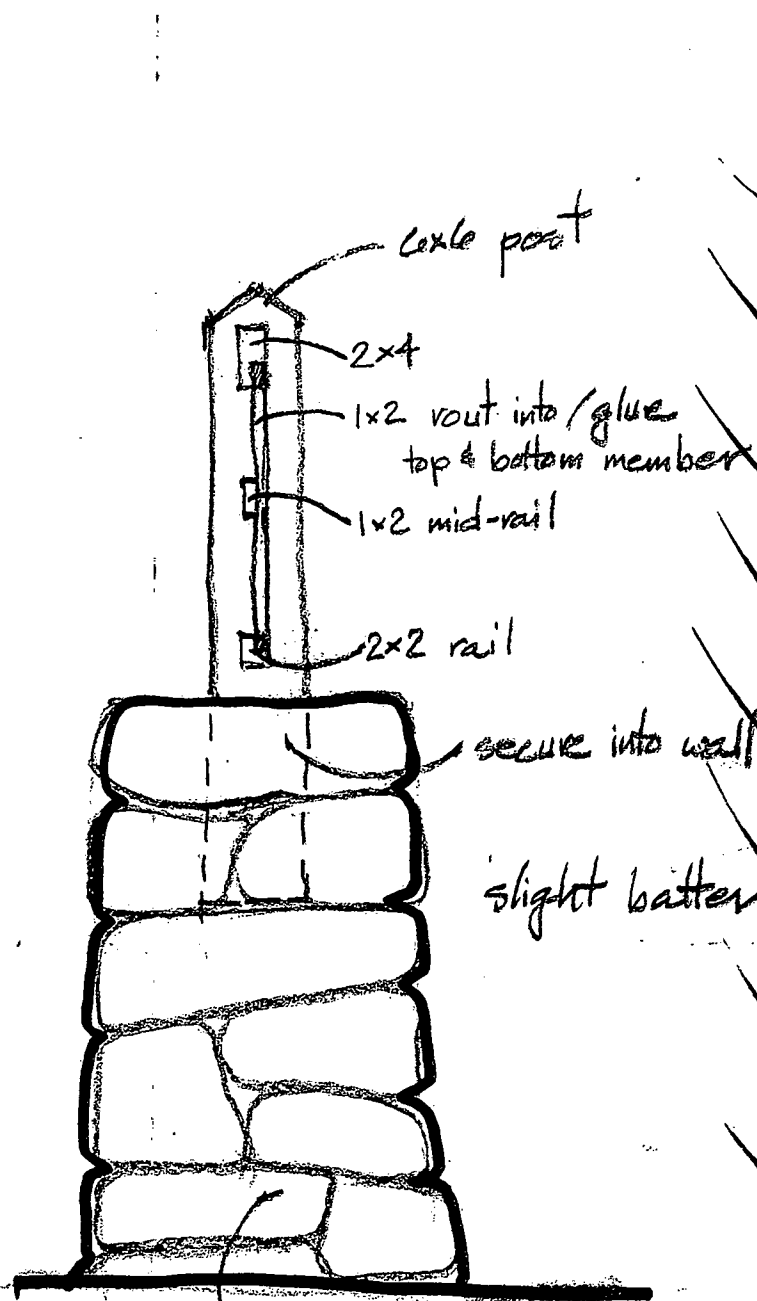 6x6 post
2x4
1x2 rout into/glue
top & bottom member
1x2 mid-rail
2x2 rail
secure into wall
slight batter